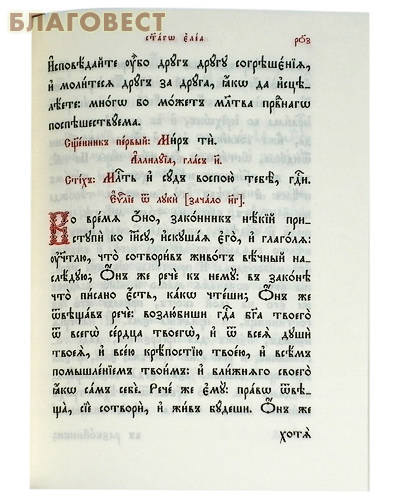 БЛАГОВЕСТ
ст҃агѡ є҆ле́а рѯ҃з
И҆сповѣ́дайте ᲂу҆̀бо дрꙋ́гъ дрꙋ́гꙋ согрѣшє́нїѧ,
и҆ моли́тесѧ дрꙋ́гъ за дрꙋ́га, ꙗ҆́кѡ да и҆сцѣ-
лѣ́ете: мно́гѡ бо мо́жетъ мл҃тва првⷣнагѡ
поспѣшествꙋ́ема.
Сщ҃е́нникъ пе́рвый: Ми́ръ тѝ.
А҆ллилꙋ́їа, гла́съ и҃.
Сті́хъ: Млⷭ҇ть и҆ сꙋ́дъ воспою̀ тебѣ̀, гдⷭ҇и.
Є҆ѵⷢ҇лїе ѿ лꙋкѝ [зача́ло н҃г].
Во вре́мѧ ѻ҆́но, зако́нникъ нѣ́кїй при-
стꙋпѝ ко і҆и҃сꙋ, и҆скꙋша́ѧ є҆го̀, и҆ глаго́лѧ:
ᲂу҆чт҃лю, что̀ сотвори́въ живо́тъ вѣ́чный на-
слѣ́дꙋю; Ѻ҆́нъ же речѐ къ немꙋ̀: въ зако́нѣ
что̀ пи́сано є҆́сть, ка́кѡ чте́ши; Ѻ҆́нъ же
ѿвѣща́въ речѐ: возлю́биши гдⷭ҇а бг҃а твоего̀
ѿ всегѡ̀ се́рдца твоегѡ̀, и҆ ѿ всеѧ̀ дꙋшѝ
твоеѧ̀, и҆ все́ю крѣ́постїю твое́ю, и҆ всѣ́мъ
помышле́нїемъ твои́мъ: и҆ бли́жнѧго своего̀
ꙗ҆́кѡ са́мъ себѐ. Рече́ же є҆мꙋ̀: пра́вѡ ѿвѣ-
ща̀, сїѐ сотворѝ, и҆ жи́въ бꙋ́деши. Ѻ҆́нъ же
хотѧ̀